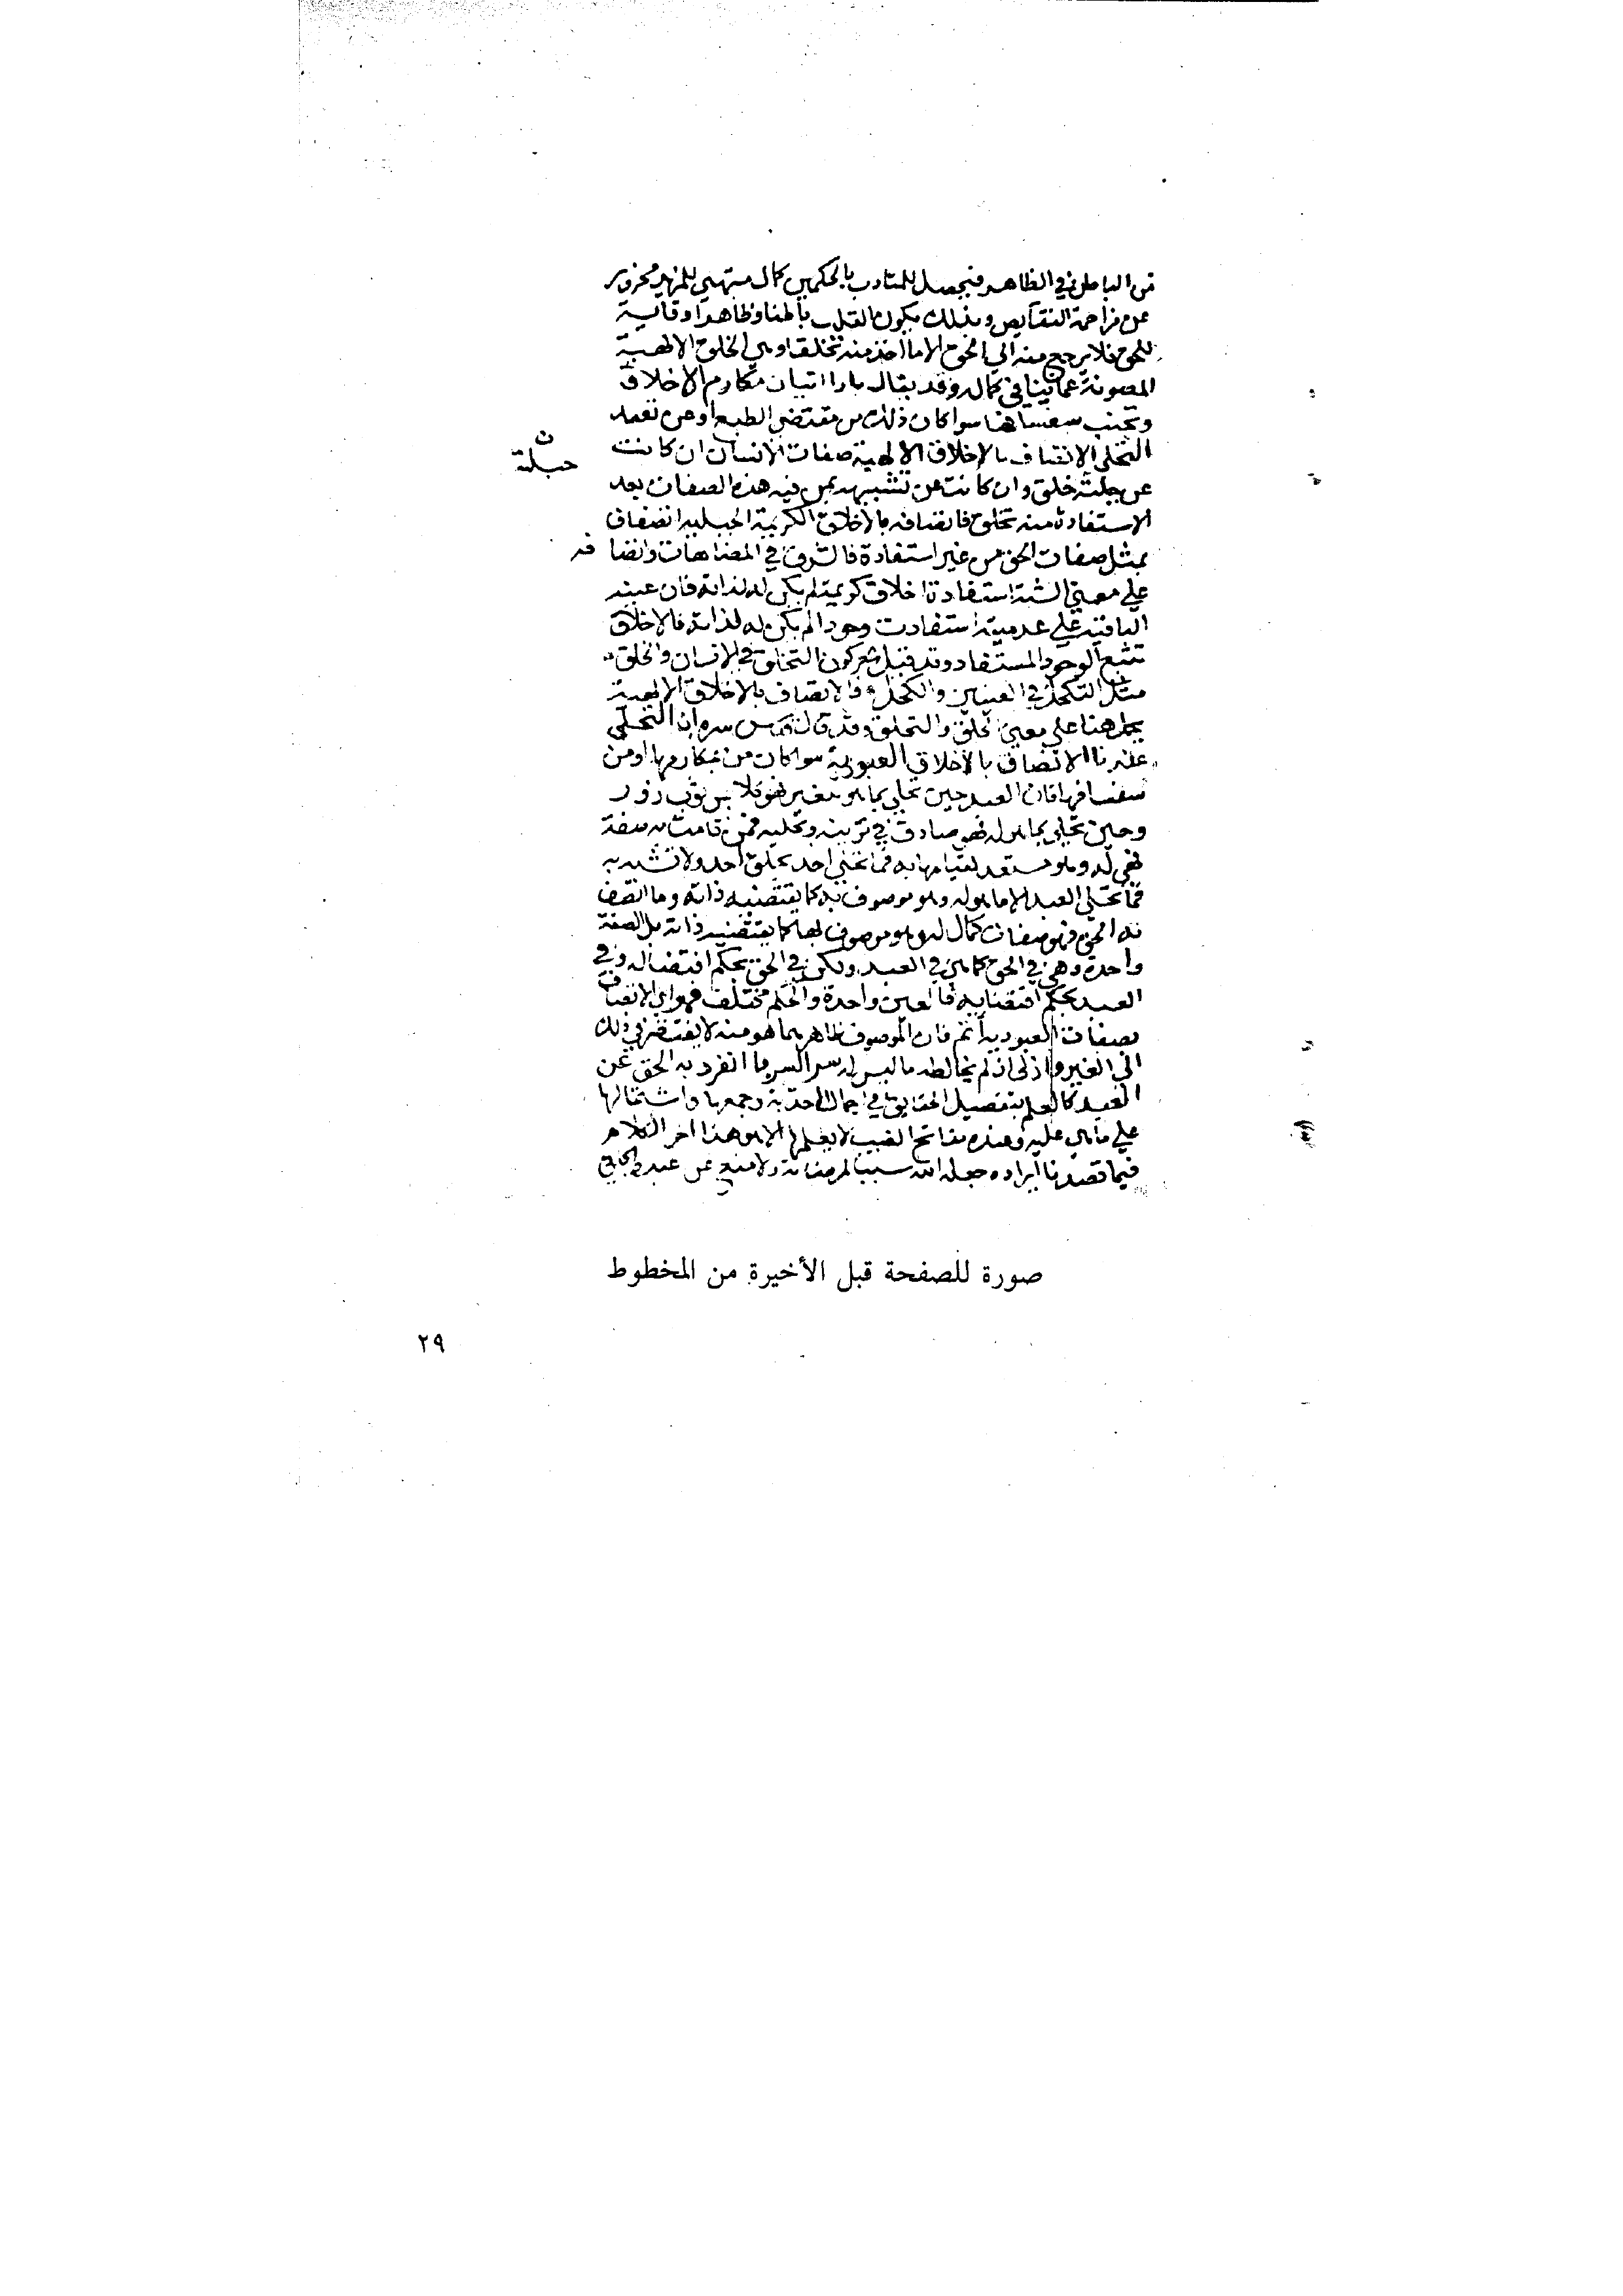 من الباطن في الظاهر فيحصل للمتادب بالحكمين كمال
عن مزاحمة النقايص وبذلك يكون القلب باطنا وظاهرا وقاية
للحق فلا يرجع منه الي الحق الا ما اخذ منه تخلقا وهي الخلق الالهية
المصونة عما ينافي كماله وقد يقال بازا اتيان مكارم الاخلاق
وتجنب سفسافها سوا كان ذلك من مقتضي الطبع او عن تعمد
التخلي الاتصاف بالاخلاق الالهية صفات الانسان ان كانت
جبلة
عن جبلته خلق وان كانت عن تشبيه بمن فيه هذه الصفات بعد
الاستفادة منه تخلق فاتصافه بالاخلاق الكريمة الجبلية اتصاف
بمثل صفات الحق من غير استفادة فالشرف في المضاهات واتصافه
علي معني استفادة اخلاق كريمة لم يكن له لذاته فان عينه
الباقية علي عدمية استفادت وجودا لم يكن له لذاته فالاخلاق
تتبع الوجود المستفاد وقد قيل شعر كون التخلق في الانسان والخلق
مثل التكحل في العينين والكحل فالاتصاف بالاخلاق الالهية
يحمل هنا علي معني الخلق والتخلق وقد قال قدس سره ان التخلي
عندنا الاتصاف بالاخلاق العبودية سوا كان من مكارمها او من
سفسافها فان العبد حين تحلي بما هو لغيره فهو كلابس ثوب زور
وحين تحلي بما هو له فهو صادق في تزينه وتحليه فمن قامت به صفة
فهي له وهو مستعد لقيامها به فما تحلي احد بحلي احد ولا تشبه به
فما تحلي العبد الا بما هو له وهو موصوف به كما يقتضيه ذاته وما اتصف
به الحق فهو صفات كمال له وهو موصوف بها كما يقتضيه ذاته بل الصفة
واحدة وهي في الحق كما هي في العبد ولكن في الحق بحكم اقتضاله وفي
العبد بحكم اقتضايه فالعين واحدة والحكم مختلف فهو اي الاتصاف
بصفات العبودية أتم فان الموصوف ظاهر بما هو منه لا يفتقر في ذلك
الي الغير واذكي اذ لم يخالطه ما ليس له سر السر ما انفرد به الحق عن
العبد كالعلم بتفصيل الحقايق في اجمال الاحدية وجمعها واشتمالها
علي ما هي عليه وعنده مفاتح الغيب لا يعلمها الا هو هذا اخر الكلام
فيما قصدنا ايراده جعله الله سببا لمرضاته ولا منع عن عبده الجاني
صورة للصفحة قبل الأخيرة من المخطوط
٢٩